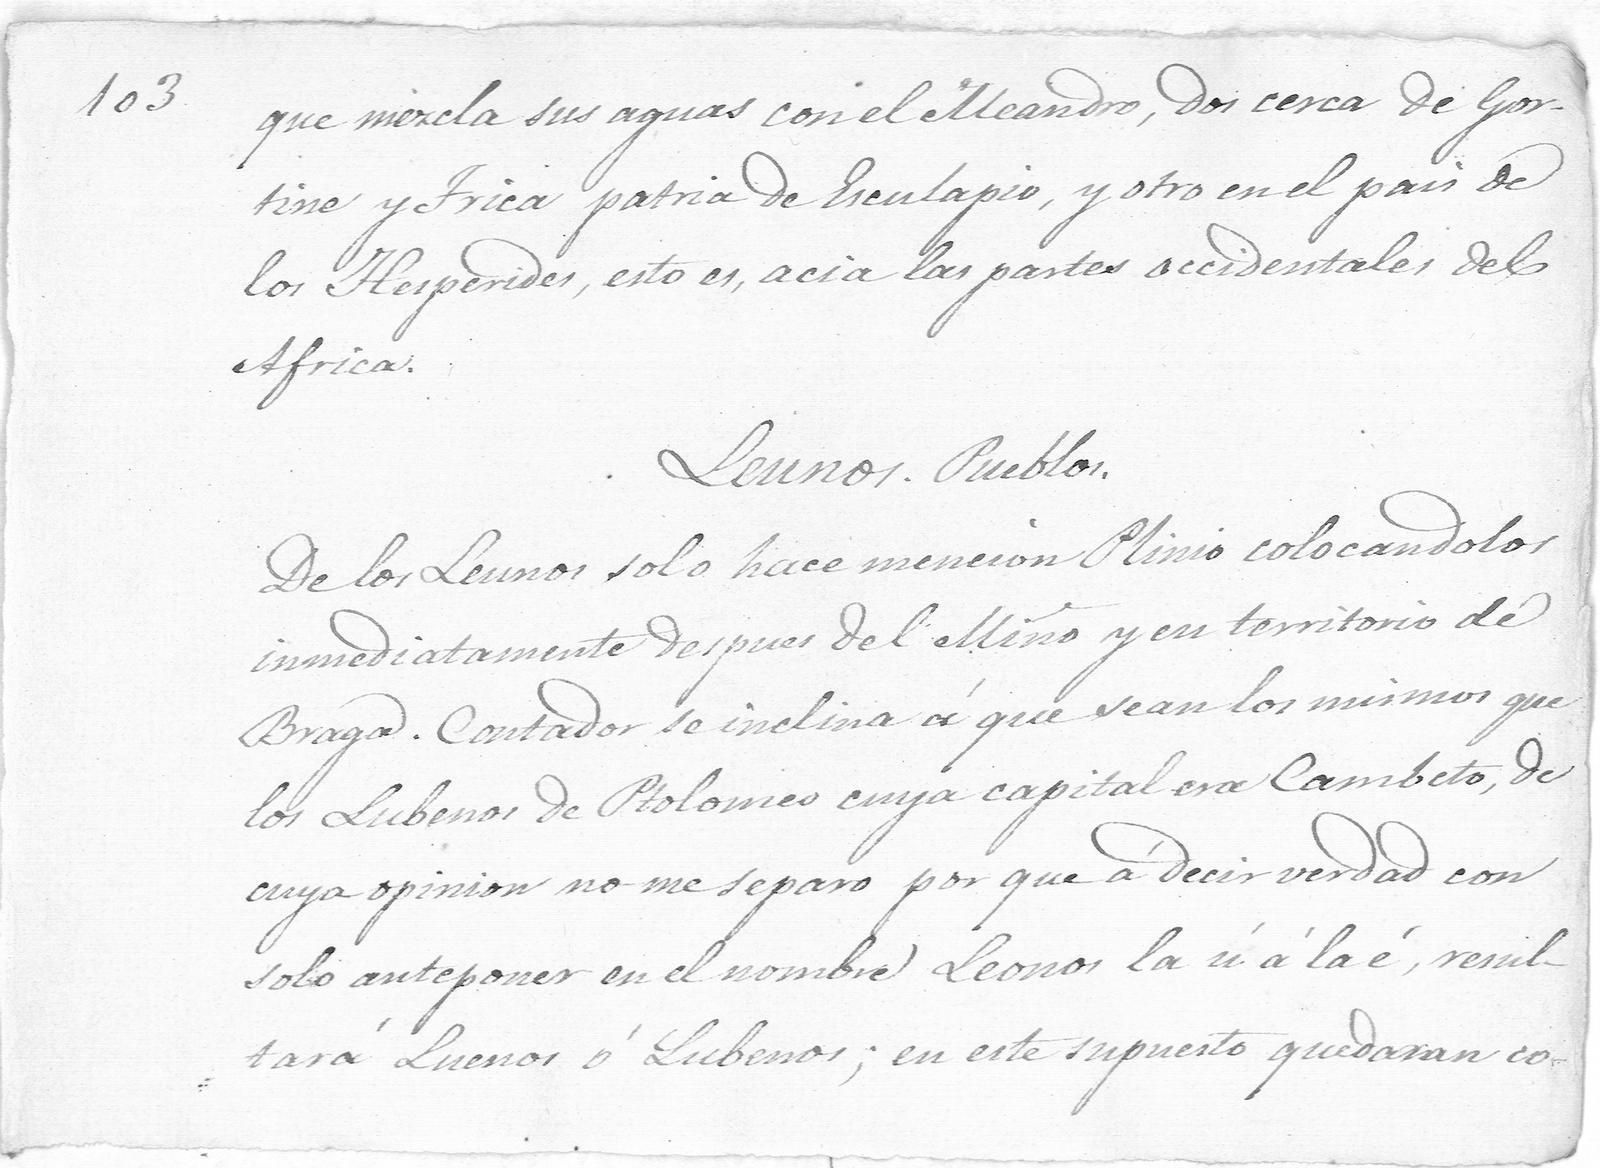 103
que mezcla sus aguas con el Meandro, dos cerca de Gor-
tine y Irica patria de Esculapio, y otro en el pais de
los Hesperides, esto es, acia las partes occidentales del
Africa.
Leunos. Pueblos.
De los Leunos solo hace mencion Plinio colocandolos
inmediatamente despues del Miño y en territorio de
Braga. Contador se inclina á que sean los mismos que
los Lubenos de Ptolomeo cuya capital era Cambeto, de
cuya opinion no me separo por que á decir verdad con
solo anteponer en el nombre Leonos la ú á la é, resul-
tará Luenos ó Lubenos; en este supuesto quedaran co-